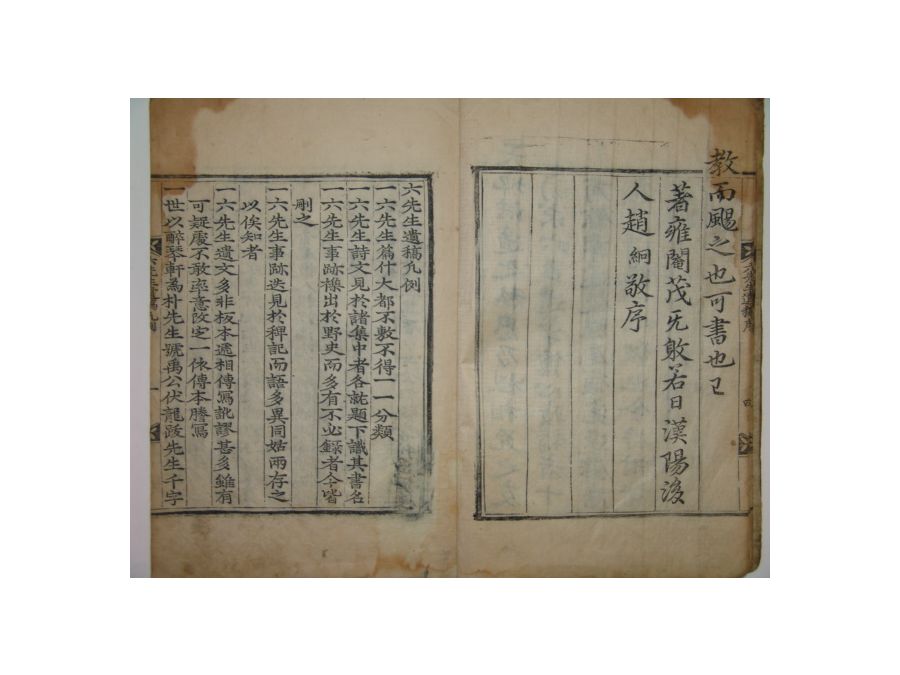 教而颺之也可書也已
著雍閹茂旡射若日漢陽後
人趙絅敬序
六先生遺稿序
四
六先生遺稿凡例
一六先生篇什大都不敷不得一一分類
一六先生詩文見於諸集中者各就題下識其書名
一六先生事跡櫽出於野史而多有不必錄者今皆
刪之
一六先生事跡迭見於稗記而語多異同姑兩存之
以俟知者
一六先生遺文多非板本遞相傳寫訛謬甚多雖有
可疑處不敢率意改定一依傳本謄寫
一世以醉琴軒爲朴先生號禹公伏龍跋先生千字